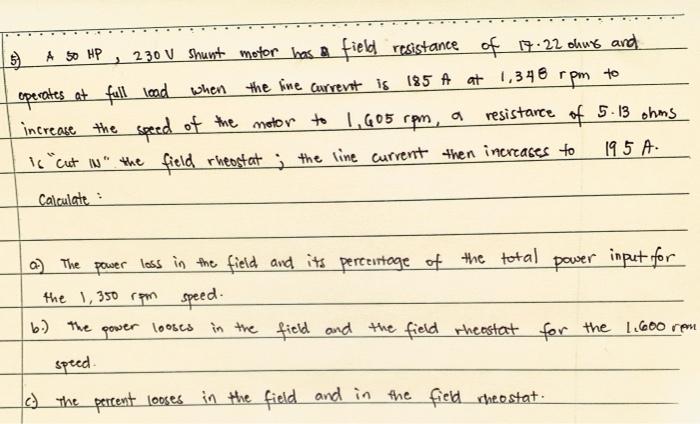 5) A 50 HP, 230 V shunt motor has a field resistance of 17.22 ohms and
operates at full load when the line current is 185 A at 1,348 rpm to
increase the speed of the motor to 1,605 rpm, a resistance of 5.13 ohms
is "cut IN" the field rheostat ; the line current then increases to 195 A.
Calculate :
a) The power loss in the field and its percentage of the total power input for
the 1,350 rpm speed.
b.) The power looses in the field and the field rheostat for the 1.600 rpm
speed.
c) The percent looses in the field and in the field rheostat.